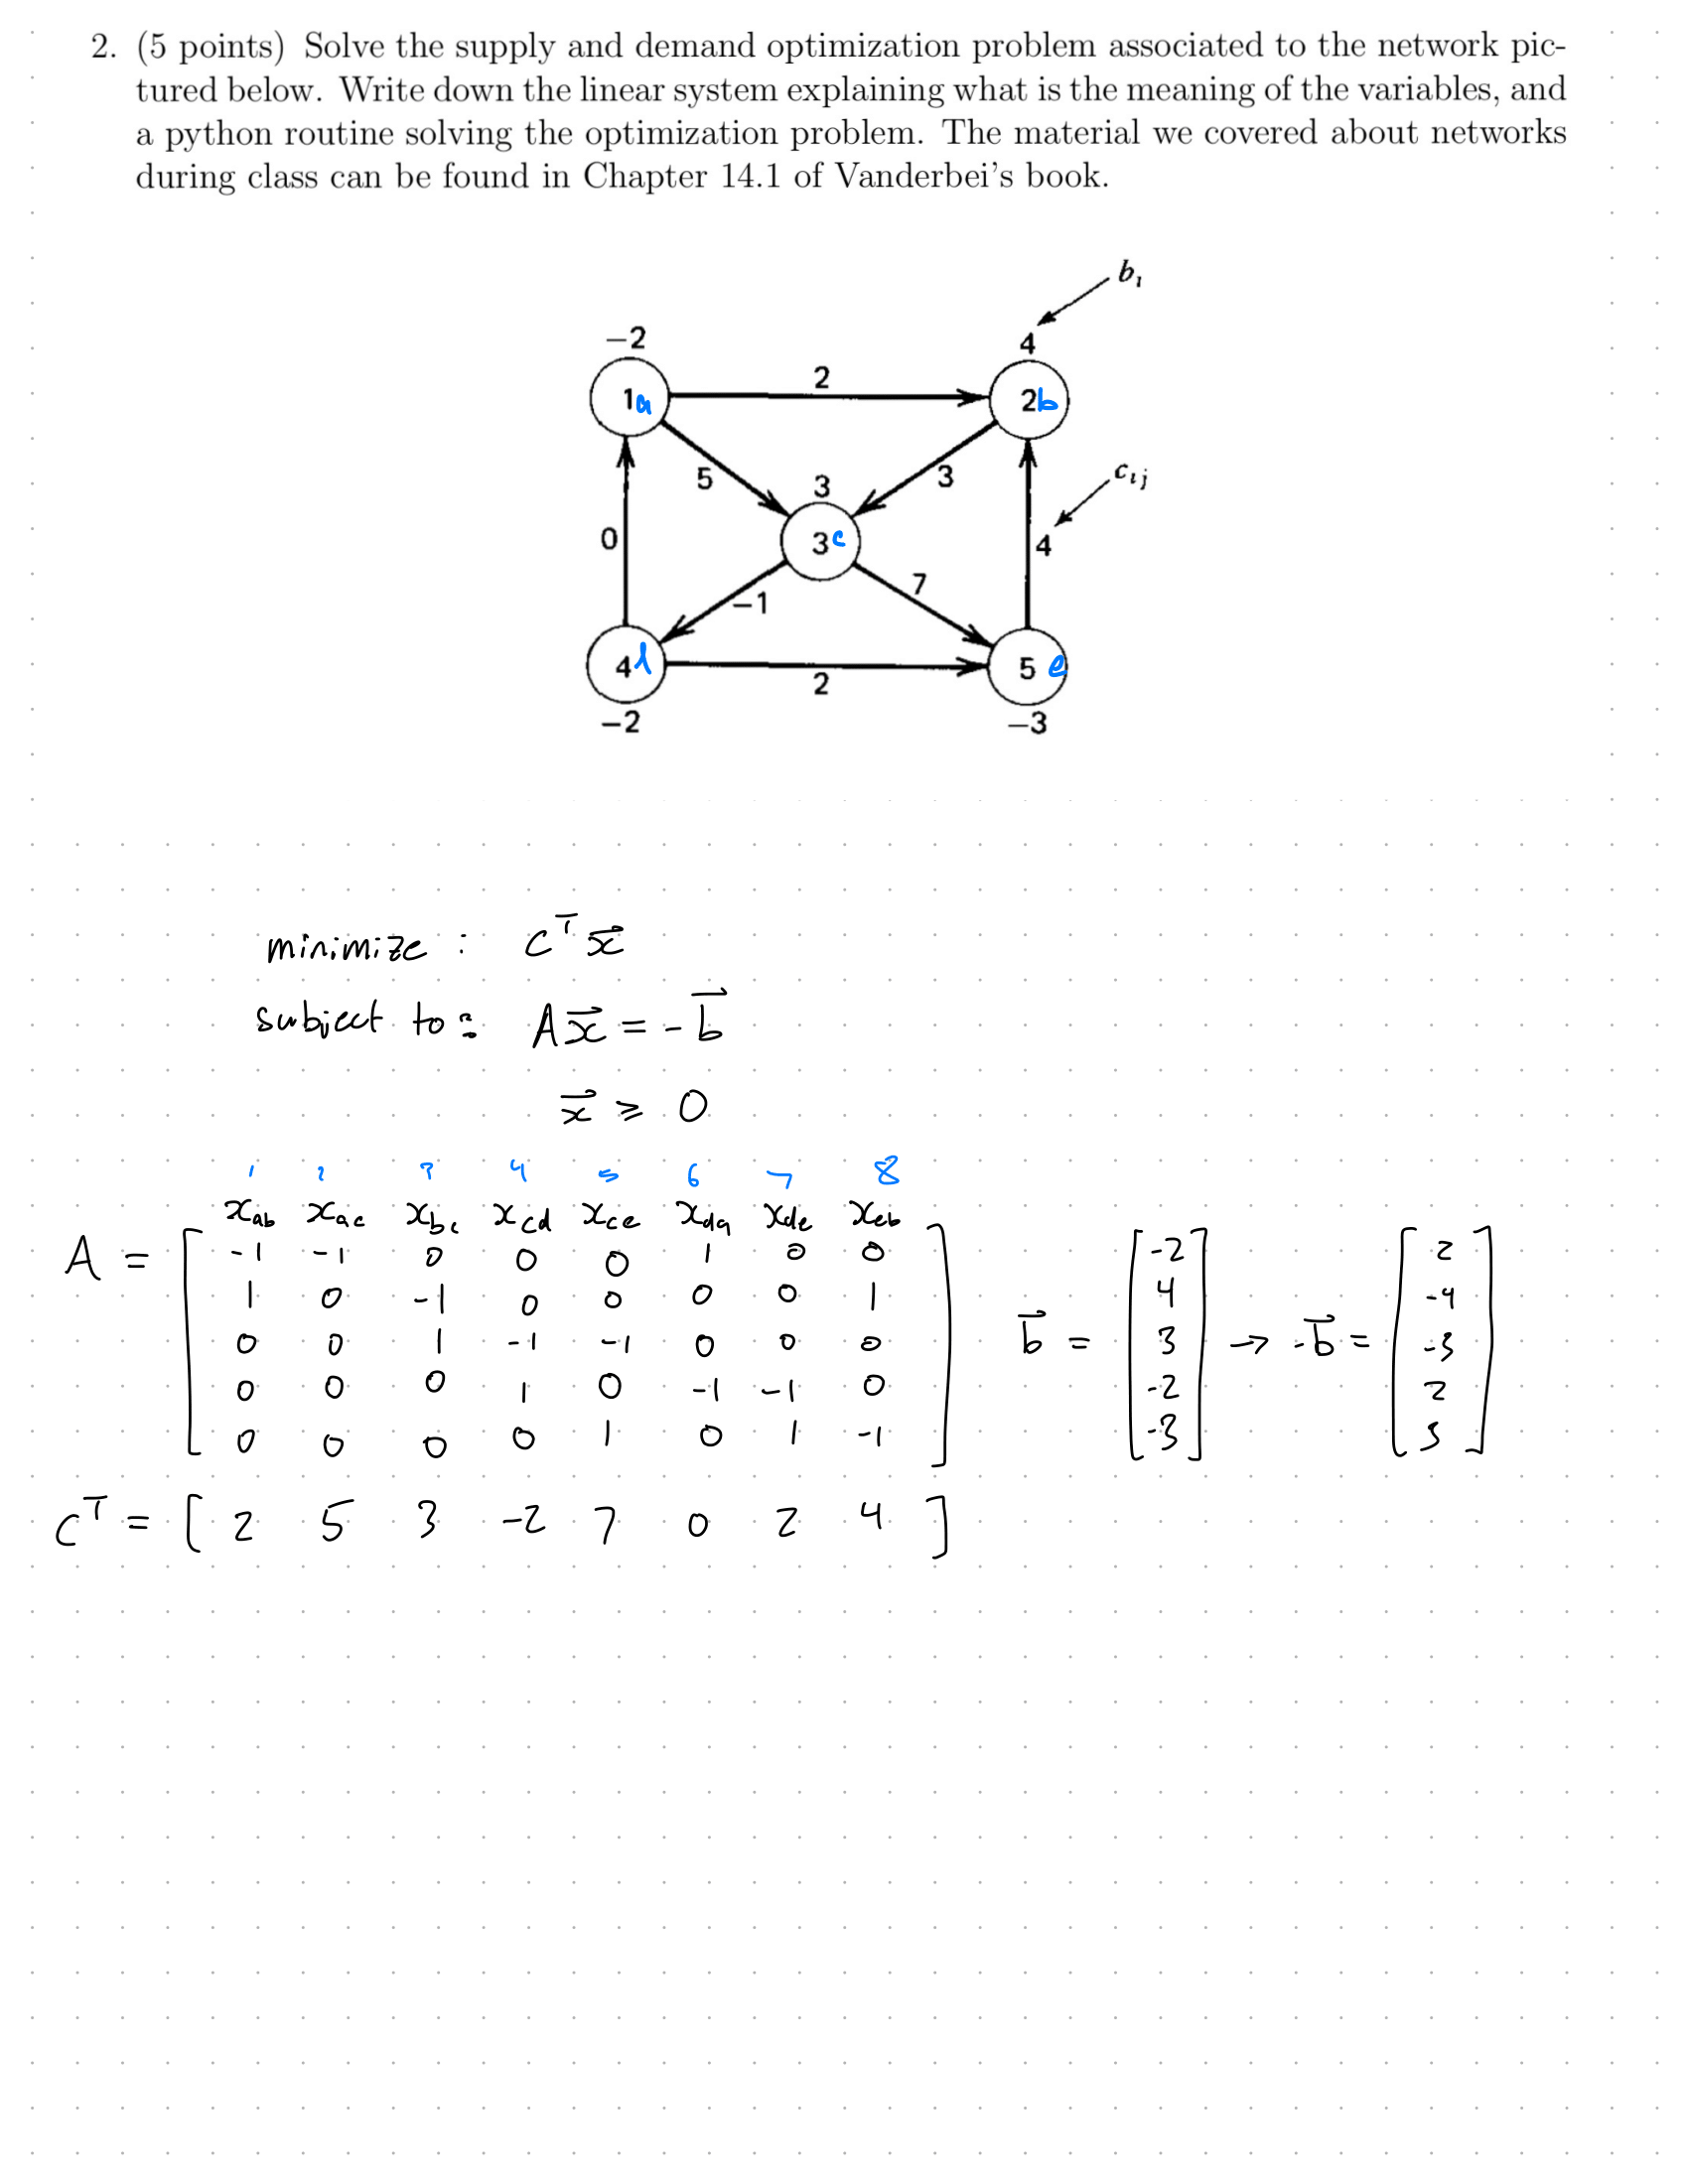 2. (5 points) Solve the supply and demand optimization problem associated to the network pic-
tured below. Write down the linear system explaining what is the meaning of the variables, and
a python routine solving the optimization problem. The material we covered about networks
during class can be found in Chapter 14.1 of Vanderbei's book.
b₁
−2 4
2
1a 2b
5 3 3 c₁j
0 3c 4
−1 7
4d 5e
2
−2 −3
minimize : cᵀx⃗
subject to: Ax⃗ = -b⃗
x⃗ ≥ 0
1 2 3 4 5 6 7 8
x_ab x_ac x_bc x_cd x_ce x_da x_de x_eb
A = [ -1 -1 0 0 0 1 0 0 ]
1 0 -1 0 0 0 0 1
0 0 1 -1 -1 0 0 0
0 0 0 1 0 -1 -1 0
0 0 0 0 1 0 1 -1
b⃗ = [ -2 4 3 -2 -3 ] → -b⃗ = [ 2 -4 -3 2 3 ]
cᵀ = [ 2 5 3 -2 7 0 2 4 ]